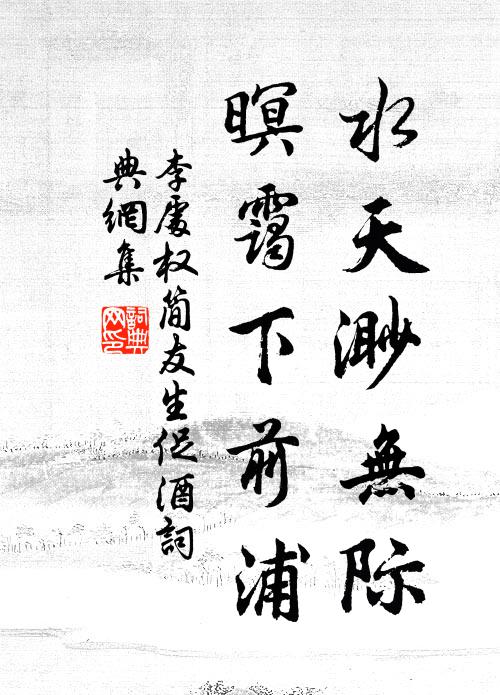 水天渺無际
暝靄下前浦
李處权简友生促酒詞
典網集
詞典
网印